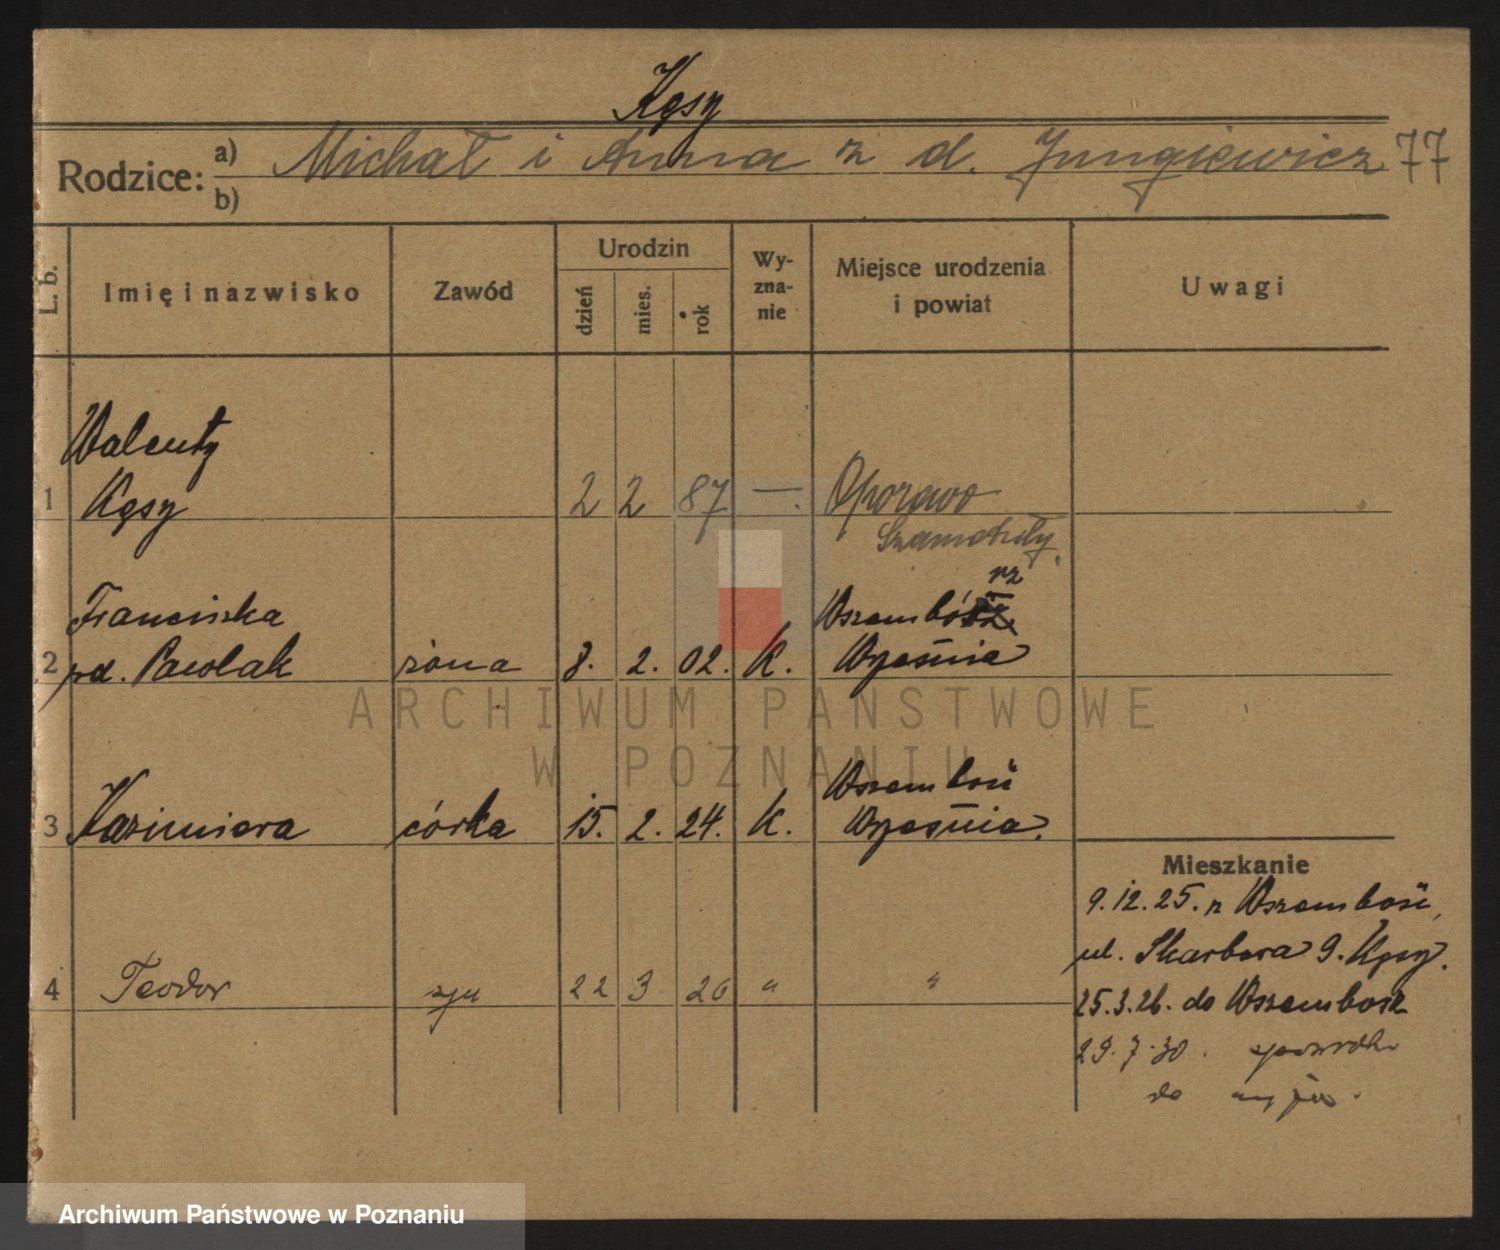 Kęsy
Rodzice: a) Michał i Anna z d. Jungiewicz 77
b)
L. b.
Imię i nazwisko
Zawód
Urodzin
dzień
mies.
rok
Wy-
zna-
nie
Miejsce urodzenia
i powiat
Uwagi
Walenty
1 Kęsy 2 2 87 —. Oporowo
Szamotuły.
rz
Franciszka Wszembórz
2 pd. Pawlak żona 8. 2. 02. K. Września
Wszembórz
3 Kazimiera córka 15. 2. 24. K. Września.
Mieszkanie
9.12.25. z Wszembórz,
ul. Skarbowa 9. Kęsy.
4 Teodor syn 22 3 26 " "
25.3.26. do Wszemborz
29.7.30.
do
ARCHIWUM PAŃSTWOWE
W POZNANIU
Archiwum Państwowe w Poznaniu